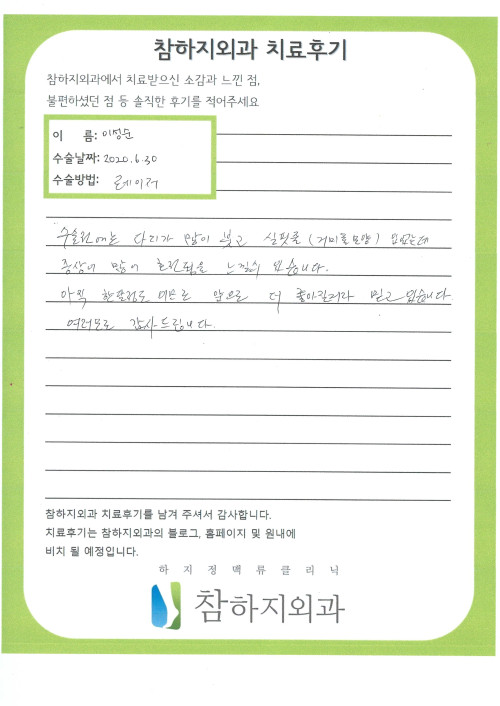 참하지외과 치료후기
참하지외과에서 치료받으신 소감과 느낀 점,
불편하셨던 점 등 솔직한 후기를 적어주세요
이 름: 이정순
수술날짜: 2020.6.30
수술방법: 레이저
수술전에는 다리가 많이 붓고 실핏줄 (거미줄 모양) 있었는데
증상이 많이 호전됨을 느낄수 있습니다.
아직 한달정도 이므로 앞으로 더 좋아질거라 믿고 있습니다
여러모로 감사드립니다.
참하지외과 치료후기를 남겨 주셔서 감사합니다.
치료후기는 참하지외과의 블로그, 홈페이지 및 원내에
비치 될 예정입니다.
하지정맥류클리닉
참하지외과